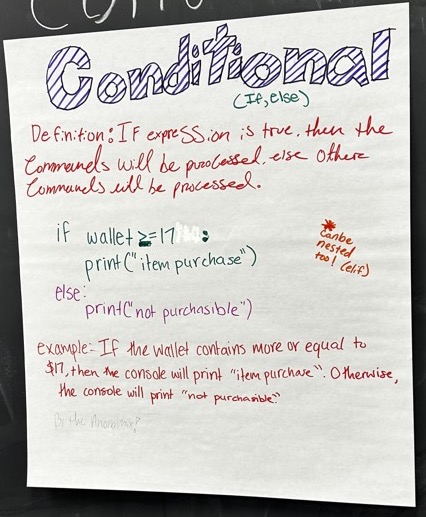 Conditional
(If, else)
Definition: IF expreSSion is true, then the
Commands will be processed, else Othere
Commands will be processed.
if wallet >=17 :
print("item purchase")
else:
print("not purchasible")
* Canbe
nested
too! (elif)
example:- If the wallet contains more or equal to
$17, then the console will print "item purchase". Otherwise,
the console will print "not purchasible."
By the